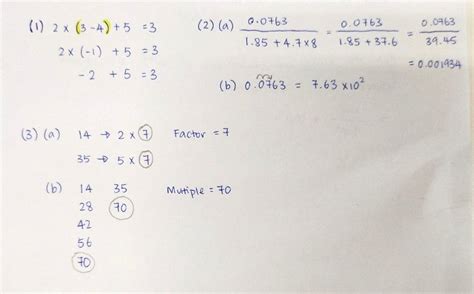 (1) 2 × (3 - 4) + 5 = 3
2 × (-1) + 5 = 3
-2 + 5 = 3
(2) (a) 0.0763 / 1.85 + 4.7×8 = 0.0763 / 1.85 + 37.6 = 0.0763 / 39.45
= 0.001934
(b) 0.0763 = 7.63 × 10²
(3) (a) 14 → 2 × 7 Factor = 7
35 → 5 × 7
(b) 14 35 Mutiple = 70
28 70
42
56
70